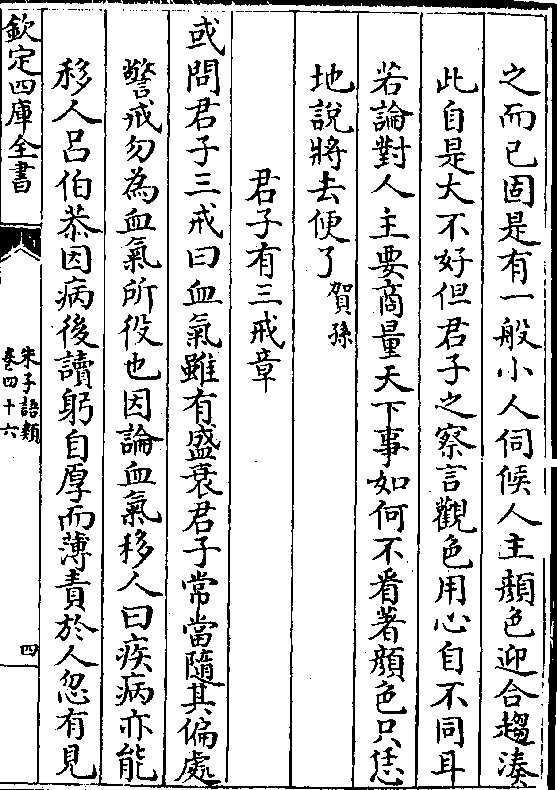 之而已固是有一般小人伺候人主顔色迎合趨湊
此自是大不好但君子之察言觀色用心自不同耳
若論對人主要商量天下事如何不看著顔色只恁
地說將去便了賀孫
君子有三戒章
或問君子三戒曰血氣雖有盛衰君子常當隨其偏處
警戒勿為血氣所役也因論血氣移人曰疾病亦能
移人呂伯恭因病後讀躬自厚而薄責於人忽有見
欽定四庫全書
朱子語類
卷四十六
四